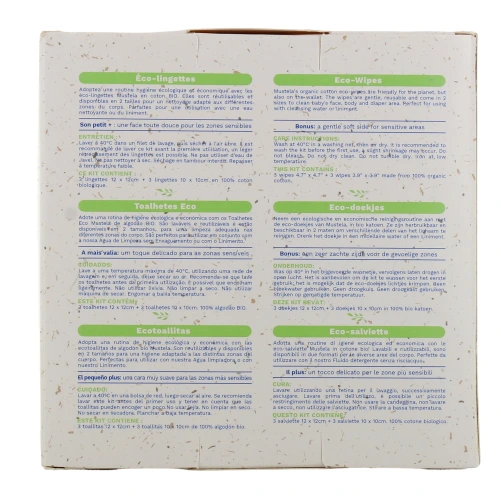 Éco-lingettes
Adoptez une routine hygiène écologique et économique avec les
éco-lingettes Mustela en coton BIO. Elles sont réutilisables et
disponibles en 2 tailles pour un nettoyage adapté aux différentes
zones du corps. Parfaites pour une utilisation avec une eau
nettoyante ou du liniment.
Son petit + : une face toute douce pour les zones sensibles
ENTRETIEN :
Laver à 40°C dans un filet de lavage, puis sécher à l'air libre. Il est
recommandé de laver le kit avant la première utilisation, un léger
rétrécissement des lingettes est possible. Ne pas utiliser d'eau de
Javel. Ne pas nettoyer à sec. Repasser
température faible.
CE KIT CONTIENT :
3 lingettes 12 x 12cm + 3 lingettes 10 x 10cm en 100% coton
biologique.
Toalhetes Eco
Adote uma rotina de higiene ecológica e económica com os Toalhetes
Eco Mustela de algodão BIO. São laváveis e reutilizáveis e estão
disponíveis em 2 tamanhos, para uma limpeza adaptada nas
diferentes zonas do corpo. São perfeitos para utilizar em conjunto com
a nossa Água de Limpeza sem Enxaguamento ou com o Linimento.
A mais valia: um toque delicado para as zonas sensíveis
CUIDADOS:
Lave a uma temperatura máxima de 40°C, utilizando uma rede de
lavagem e, em seguida, deixe secar ao ar. Recomenda-se que lave
os toalhetes antes da primeira utilização. É possível que encolham
ligeiramente. Não utilizar lixívia. Não limpar a seco Não utilizar
máquina de secar. Engomar a baixa temperatura.
ESTE KIT CONTÉM:
3 toalhetes 12 x 12cm + 3 toalhetes 10 x 10cm, 100% algodão BIO.
Ecotoallitas
Adopta una rutina de higiene ecológica y económica con las
ecotoallitas de algodón bio Mustela. Son reutilizables y disponibles
en 2 tamaños para una higiene adaptada a las distintas zonas del
cuerpo. Perfectas para utilizar con nuestra Agua Limpiadora o con
nuestro Linimento
El pequeño plus: una cara muy suave para las zonas más sensibles
CUIDADO:
Lavar a 40°C en una bolsa de red, luego secar al aire. Se recomienda
lavar este kit antes del primer uso y tener en cuenta que las
toallitas pueden encoger un poco. No usar lejía. No limpiar en seco.
No secar en secadora. Planchar a baja temperatura.
ESTE KIT CONTIENE :
3 toallitas 12 x 12cm + 3 toallitas 10 x 10cm de 100% algodón bio.
Eco-Wipes
Mustela's organic cotton eco-wipes are friendly for the planet, but
also on the wallet. The wipes are gentle, reusable and come in 2
sizes to clean baby's face, body and diaper area. Perfect for using
with cleansing water or liniment.
Bonus: a gentle soft side for sensitive areas
CARE INSTRUCTIONS:
Wash at 40°C in a washing net, then air dry. It is recommended to
wash the kit before the first use, a slight shrinkage may occur. Do
not bleach. Do not dry clean. Do not tumble dry. Iron at low
temperature.
THIS KIT CONTAINS:
3 wipes 4.7" x 4.7" + 3 wipes 3.9" x 3.9" made from 100% organic
cotton.
Eco-doekjes
Neem een ecologische en economische reinigingsroutine aan met
de eco-doekjes van Mustela, in bio katoen. Ze zijn herbruikbaar en
beschikbaar in 2 maten om verschillende delen van het lichaam te
reinigen. Drenk het doekje in een micellaire water of een liniment.
Bonus: een zeer zachte zijde voor de gevoelige zones
ONDERHOUD:
Was op 40° in het bijgevoegde wasnetje, vervolgens laten drogen in
open lucht. Het is aanbevolen om de kit te wassen voor het eerste
gebruik, het is mogelijk dat de eco-doekjes lichtjes krimpen. Geen
bleekwater gebruiken. Geen droogkuis. Geen droogkast gebruiken,
strijken op gerafelde temperatuur.
DEZE KIT BEVAT:
3 doekjes 12 x 12cm + 3 doekjes 10 x 10cm in 100% bio katoen.
Eco-salviette
Adotta una routine di igiene ecologica ed economica con le
eco-salviette Mustela in cotone bio! Lavabili e riutilizzabili, sono
disponibili in due formati per le diverse aree del corpo. Perfette da
utilizzare con il nostro Fluido detergente senza risciacquo.
Il plus: un tocco delicato per le zone più sensibili
CURA:
Lavare utilizzando una retina per il lavaggio, successivamente
asciugare. Lavare prima dell'utilizzo, è possibile un piccolo
restringimento delle salviette. Non usare la candeggina, non lavare
a secco, non utilizzare l'asciugatrice. Stirare a bassa temperatura.
QUESTO KIT CONTIENE:
3 salviette 12 x 12cm + 3 salviette 10 x 10cm. 100% cotone biologico.